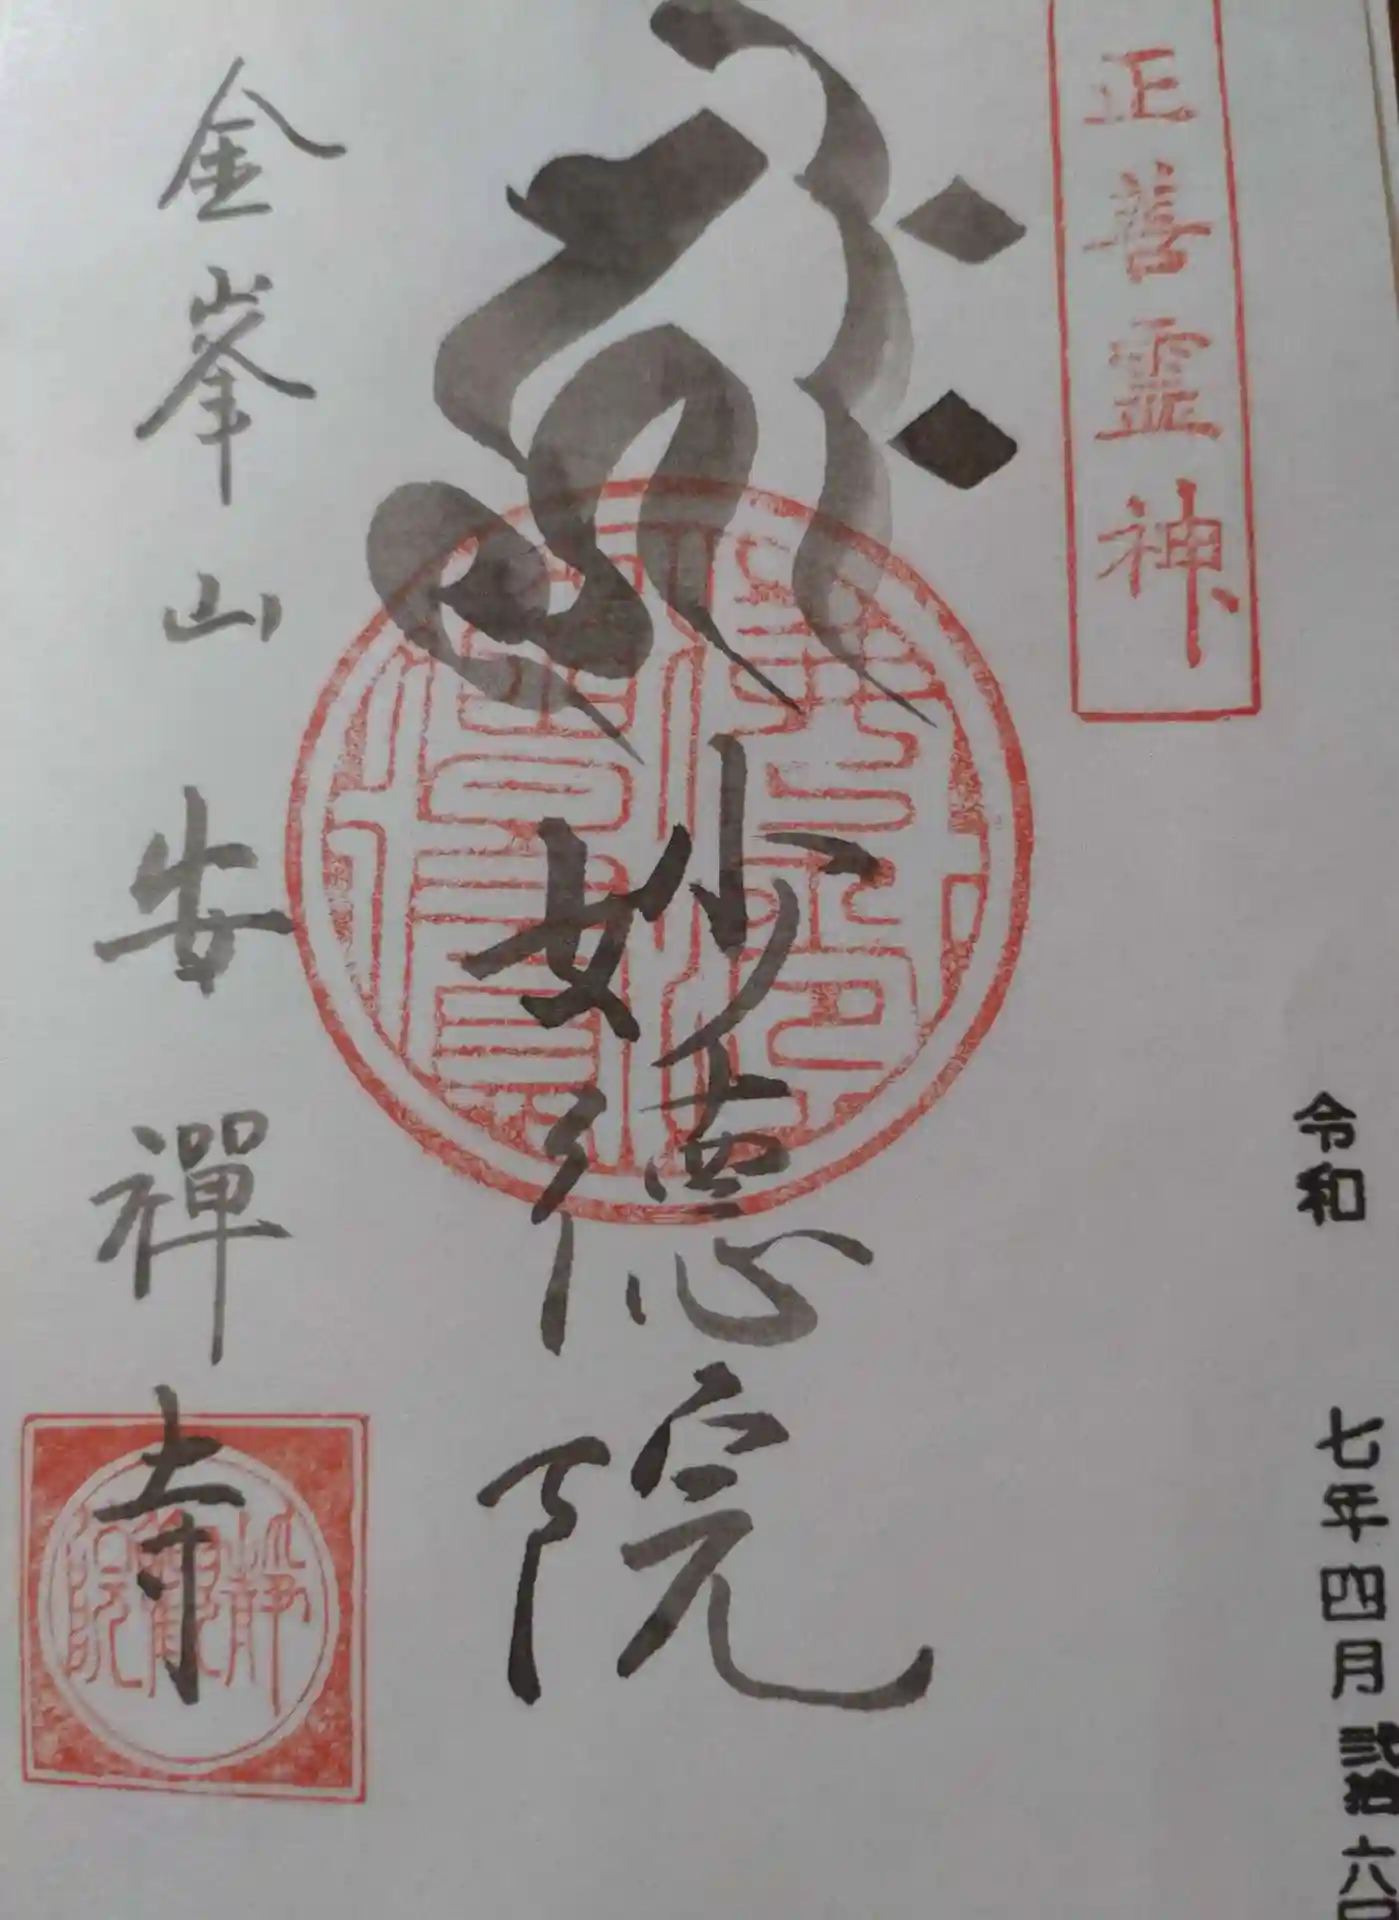 正善霊神
令和 七年四月弐拾六日
妙徳院
金峯山安禅寺
静観院